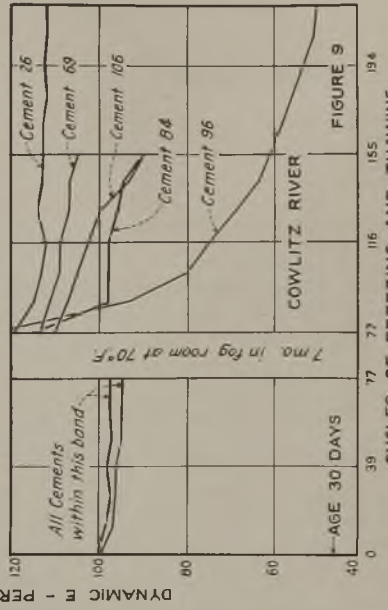 DYNAMIC E - PER
120
100
80
60
40
All Cements
within this band
AGE 30 DAYS
7 mo. in fog room at 70°F.
Cement 26
Cement 69
Cement 106
Cement 84
Cement 96
COWLITZ RIVER
FIGURE 9
0
39
77
77
116
155
194
CYCLES OF FREEZING AND THAWING